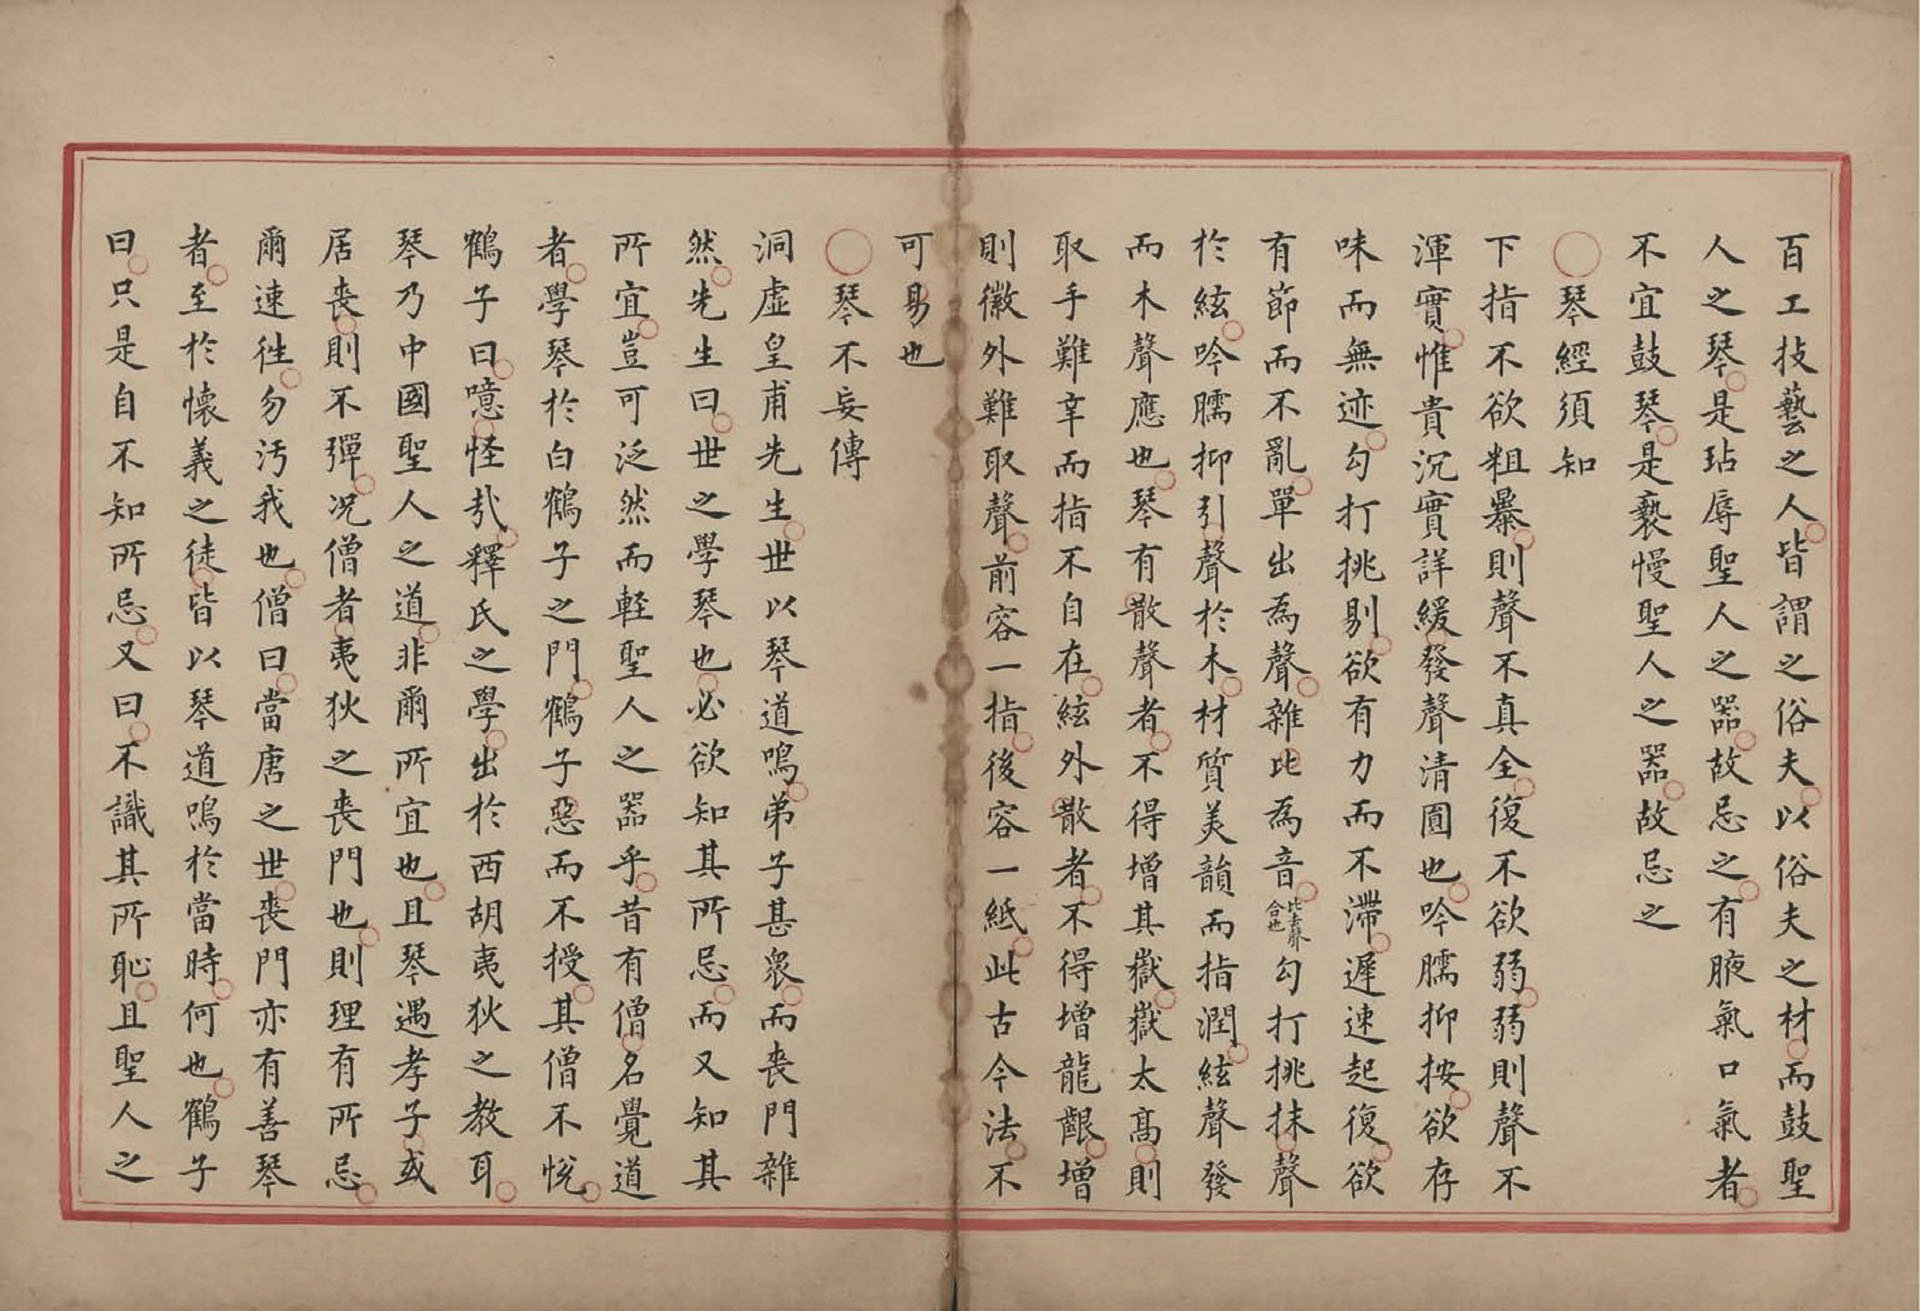 百工技藝之人皆謂之俗夫以俗夫之材而鼓聖
人之琴是玷辱聖人之器故忌之有腋氣口氣者
不宜鼓琴是褻慢聖人之器故忌之
〇琴經須知
下指不欲粗暴則聲不真全復不欲弱弱則聲不
渾實惟貴沉實詳緩發聲清圓也吟臑抑按欲存
味而無迹勾打挑剔欲有力而不滯遲速起復欲
有節而不亂單出為聲雜比為音比去聲合也勾打挑抹聲
於絃吟臑抑引聲於木材質美韻而指潤絃聲發
而木聲應也琴有散聲者不得增其嶽嶽太高則
取手難幸而指不自在絃外散者不得增龍齦增
則徽外難取聲前容一指後容一紙此古今法不
可易也
〇琴不妄傳
洞虛皇甫先生世以琴道鳴弟子甚衆而喪門雜
然先生曰世之學琴也必欲知其所忌而又知其
所宜豈可泛然而軽聖人之器乎昔有僧名覺道
者學琴於白鶴子之門鶴子惡而不授其僧不悅
鶴子曰噫怪哉釋氏之學出於西胡夷狄之教耳
琴乃中國聖人之道非爾所宜也且琴遇孝子或
居喪則不彈况僧者夷狄之喪門也則理有所忌
爾速徃勿汚我也僧曰當唐之世喪門亦有善琴
者至於懷義之徒皆以琴道鳴於當時何也鶴子
曰只是自不知所忌又曰不識其所恥且聖人之